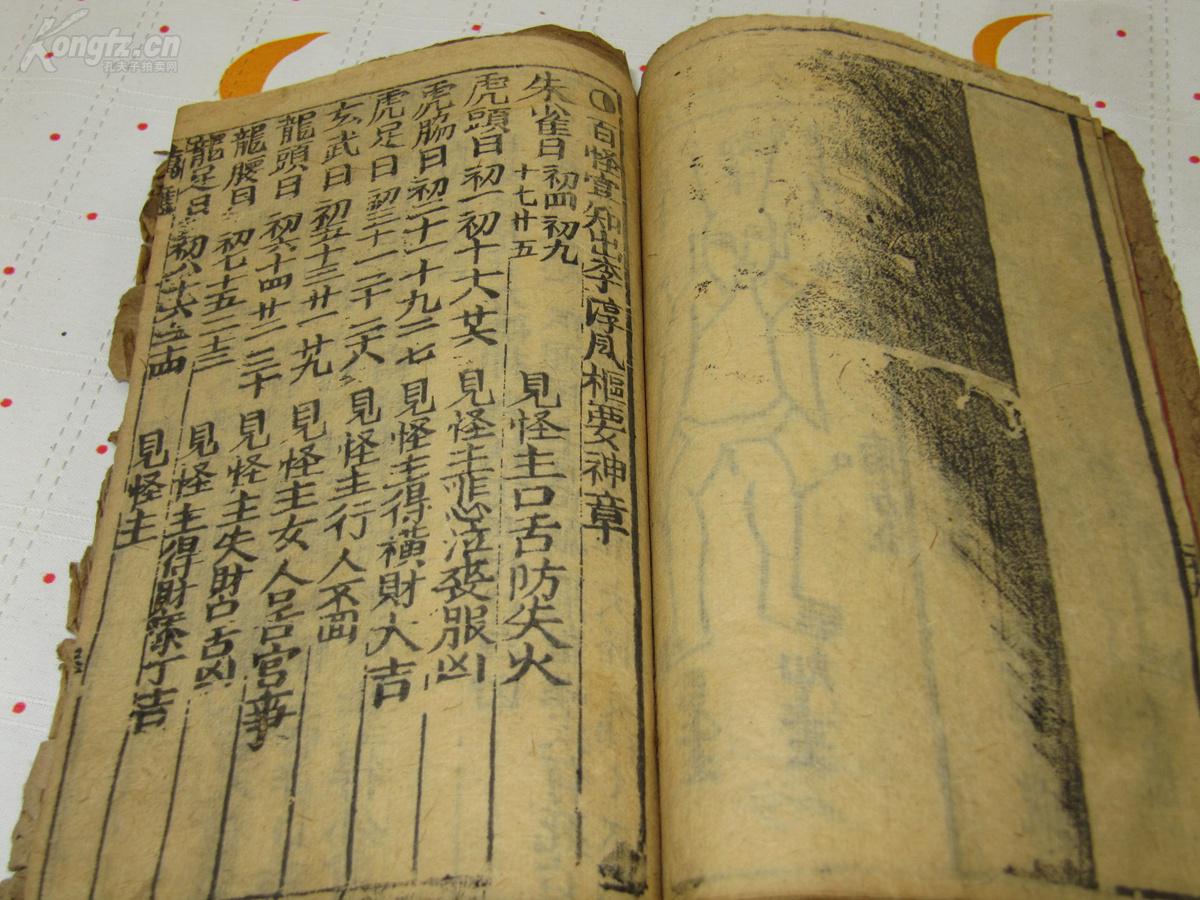 Kongfz.cn
孔夫子拍卖网
百怪宜知出李淳風樞要神章
朱雀日 初四 初九 十七 廿五 見怪主口舌防失火
虎頭日 初一 初十 十六 廿六 見怪主悲泣丧服凶
虎脇日 初二 十一 十九 二七 見怪主得橫財大吉
虎足日 初三 十二 二十 二八 見怪主行人不回
玄武日 初五 十三 廿一 廿九 見怪主女人口舌官事
龍頭日 初六 十四 廿二 三十 見怪主失財口舌凶
龍腰日 初七 十五 二十三 見怪主得財添丁吉
龍足日 初八 十六 二十四 見怪主